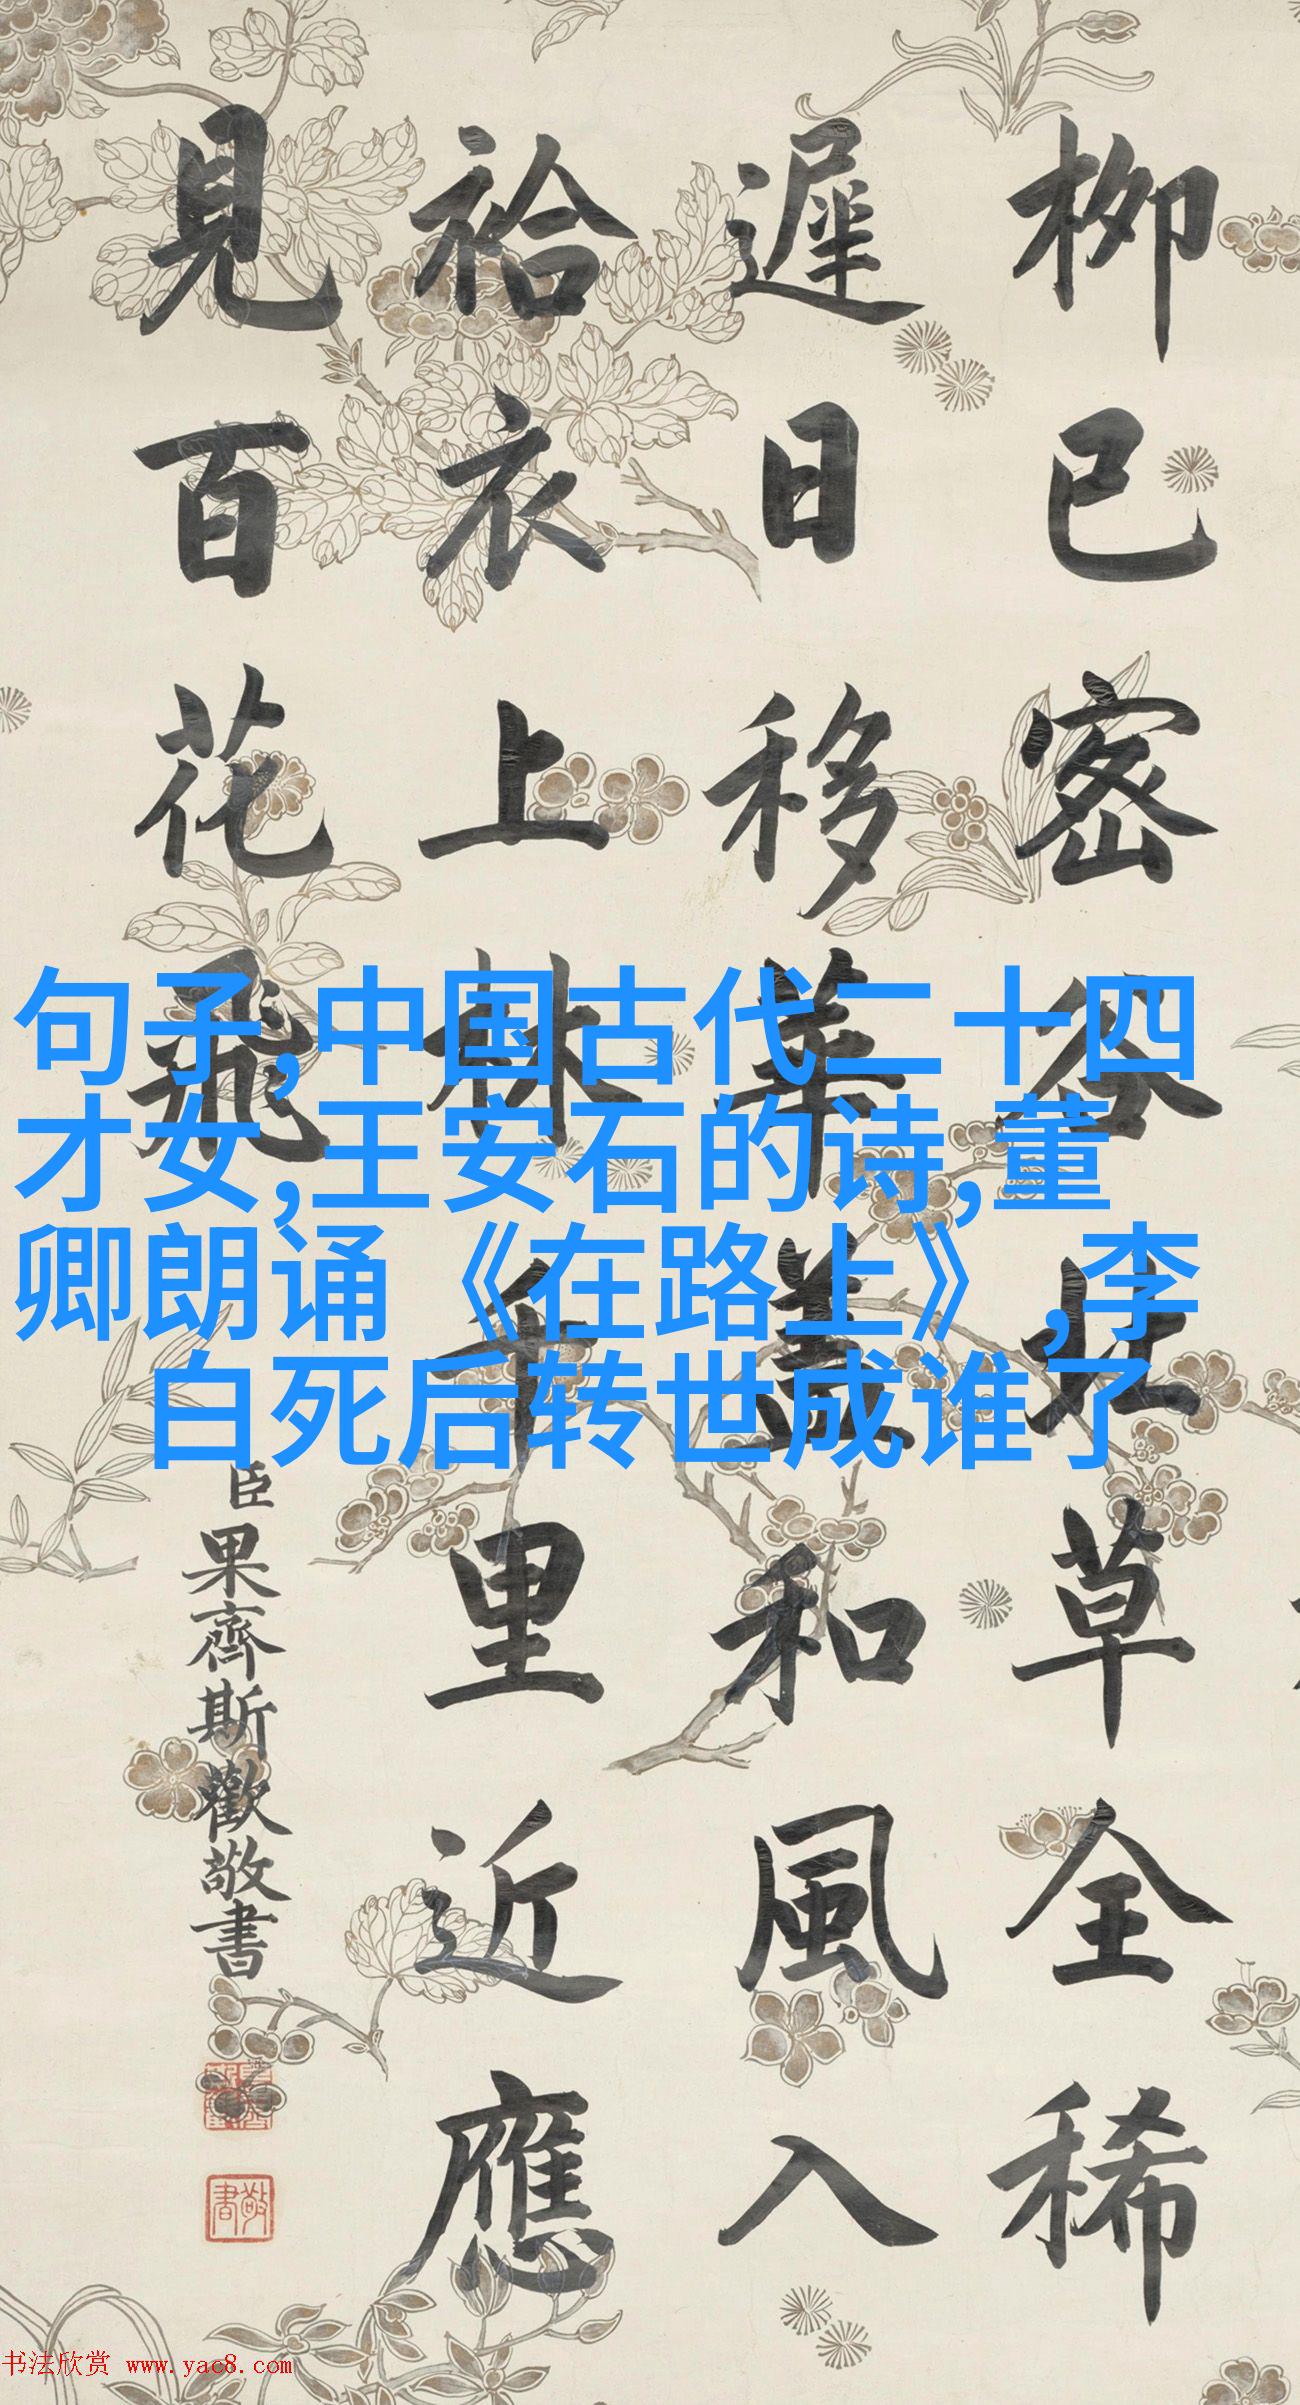 柳已密谷北草全稀
遲日移華蓋和風入
袷衣上林千里近應
見百花飛
臣果齊斯歡敬書
敬書
句子,中国古代二十四
才女,王安石的诗,董
卿朗诵《在路上》,李
白死后转世成谁了
书法欣赏 www.yac8.com